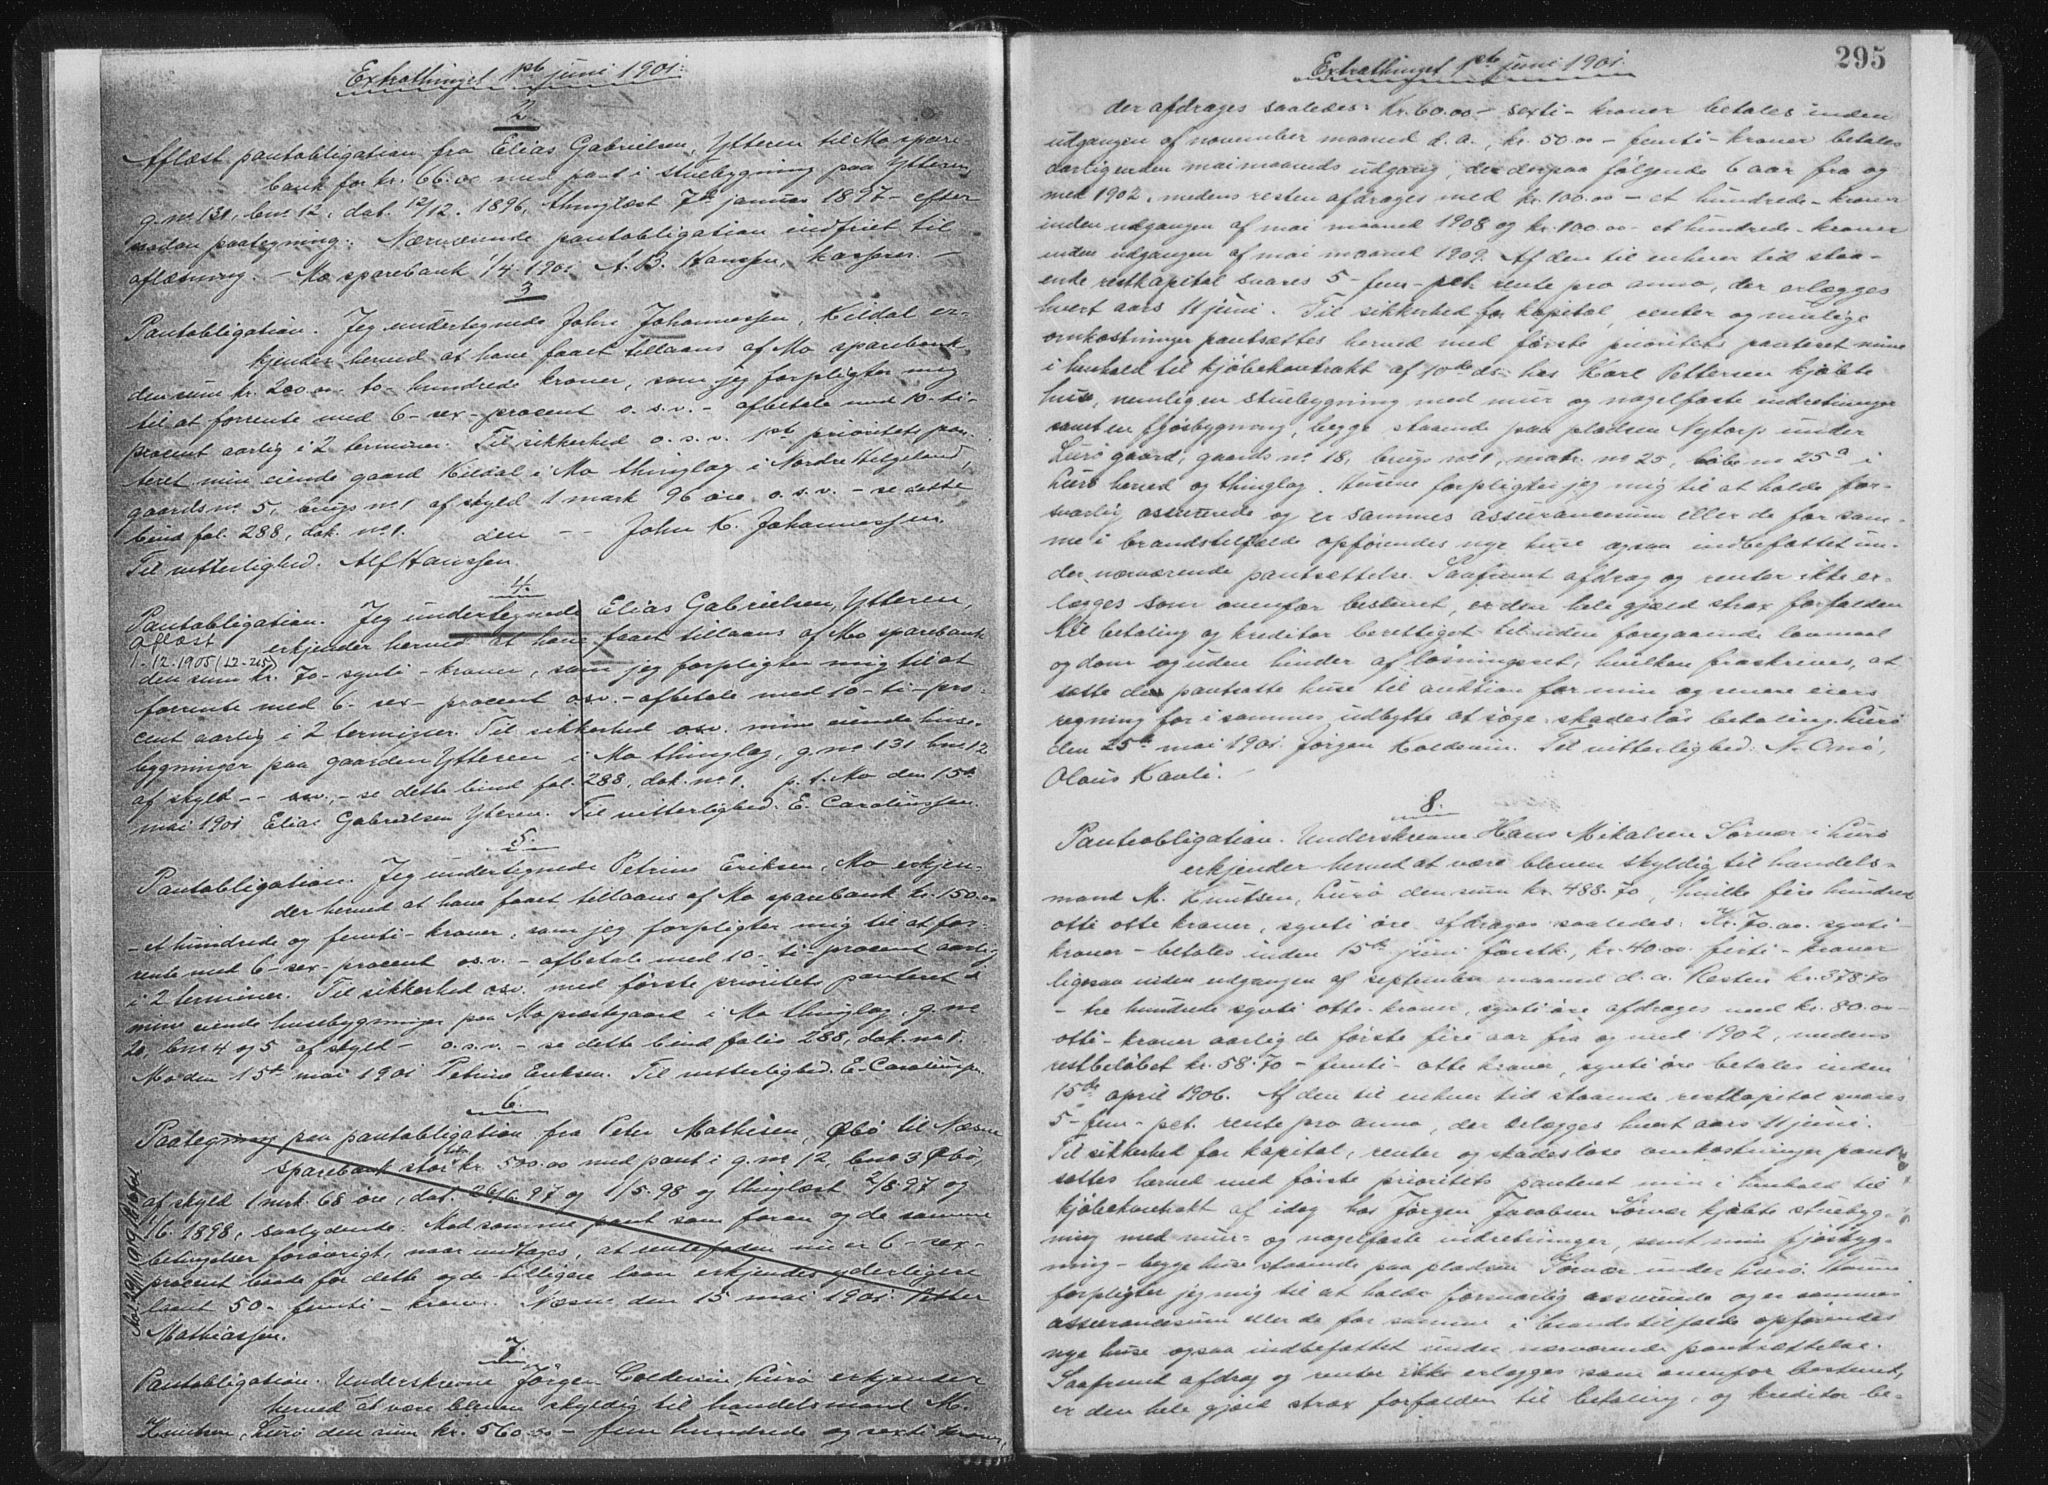 Extrathinget 1ste juni 1901.
2
Aflæst pantobligation fra Elias Gabrielsen, Ytteren til Mo spare
bank for kr. 66.00 med pant i stuebygning paa Ytteren
g. no 131, bno 12, dat. 12/12. 1896, thinglæst 7de januar 1897 - efter
saadan paategning: Nærværende pantobligation indfriet til
aflæsning. - Mo sparebank 1/4 1901 A. B. Hanssen, kasserer. -
3
Pantobligation. Jeg undertegnede John Johannessen, Kildal er-
kjender herved at have faaet tillaans af Mo sparebank
den sum kr. 200.00 to-hundrede kroner, som jeg forpligter mig
til at forrente med 6-sex-procent o.s.v. - afbetale med 10-ti-
procent aarlig i 2 terminer. Til sikkerhed o.s.v. 1ste prioritets pan-
teret min eiende gaard Kildal i Mo thinglag i Nordre Helgeland,
gaards no 5, brugs no 1 af skyld 1 mark 96 øre o.s.v. - se dette
bind fol. 288, dok. no 1. den - John K. Johannessen.
Til vitterlighed. Alf Hanssen.
4.
Pantobligation. Jeg undertegnede Elias Gabrielsen, Ytteren,
aflæst erkjender herved at have faaet tillaans af Mo sparebank
1-12.1905 (12-265)
den sum kr. 70- sytti- kroner, som jeg forpligter mig til at
forrente med 6- sex- procent osv. - afbetale med 10- ti- pro-
cent aarlig i 2 terminer. Til sikkerhed osv. min eiende huse-
bygninger paa gaarden Ytteren i Mo thinglag, g. no 131 bno 12
af skyld - - osv. - se dette bind fol. 288, dok. no 1. p. t. Mo den 15de
mai 1901 Elias Gabrielsen Yteren. Til vitterlighed. E. Caroliussen.
5.
Pantobligation. Jeg undertegnede Petrine Eriksen, Mo erkjen-
der herved at have faaet tillaans af Mo sparebank kr. 150.00
- et hundrede og femti - kroner, som jeg forpligter mig til at for-
rente med 6- sex- procent osv. - afbetale med 10- ti- procent aarlig
i 2 terminer. Til sikkerhed osv. med første prioritets panteret i
mine eiende husebygninger paa Mo præstegaard i Mo thinglag, g. no
20, bno 4 og 5 af skyld - o.s.v. - se dette bind folio 288, dok. no 1.
Mo den 15de mai 1901 Petrine Eriksen. Til vitterlighed. E. Caroliussen.
6.
Paategning paa pantobligation fra Peter Mathisen, Øbø til Næsne
sparebank stor kr. 500.00 med pant i g. no 12, bno 3 Øbø,
af skyld 1 mrk. 68 øre, dat. 26/6 97 og 1/5. 98 og thinglæst 2/8 97 og
1/6. 1898, saalydende: Mod samme pant som foran og de samme
betingelser forøvrigt, naar undtages, at rentefoden nu er 6 - sex-
procent baade for dette og de tilligere laan erkjendes yderligere
laant 50- femti - kroner. Næsne den 15 mai 1901 Petter
Mathiassen.
7.
Pantobligation. Underskrevne Jørgen Coldevin, Lurø erkjender
herved at være bleven skyldig til handelsmand M.
Knutsen, Lurø den sum kr. 560.00 - fem hundrede og sexti kroner,
295
Extrathinget 1ste juni 1901.
der afdrages saaledes: Kr. 60.00 - sexti - kroner betales inden
udgangen af november maaned d. a., kr. 50.00 - femti - kroner betales
aarlig inden mai maaneds udgang, de derpaa følgende 6 aar fra og
med 1902, medens resten afdrages med kr. 100.00 - et hundrede - kroner
inden udgangen af mai maaned 1908 og kr. 100.00 - et hundrede - kroner
inden udgangen af mai maaned 1909. Af den til enhver tid staa-
ende restkapital svares 5 - fem - pct. rente pro anno, der erlægges
hvert aars 11 juni. Til sikkerhed for kapital, renter og mulige
omkostninger pantsættes herved med første prioritets panteret mine
i henhold til kjøbekontrakt af 10de ds. hos Karl Pettersen kjøbte
huse, nemlig en stuebygning med mur og nagelfaste indretninger
samt en fjøsbygning, begge staaende paa pladsen Nytorp under
Lurø gaard, gaards no 18, brugs no 1, matr. no 25, løbe no 25a i
Lurø herred og thinglag. Husene forpligter jeg mig til at holde for-
svarlig assurerede og er sammes assurancesum eller de for sam-
me i brandstilfælde opførendes nye huse ogsaa indbefattet un-
der nærværende pantsættelse. Saafremt afdrag og renter ikke er-
lægges som ovenfor bestemt, er den hele gjæld strax forfalden
til betaling og kreditor berettiget til uden foregaaende lovmaal
og dom og uden hinder af løsningsret, hvilken fraskrives, at
sætte de pantsatte huse til auktion for min og senere eiers
regning for i sammes udbytte at søge skadesløs betaling. Lurø
den 25de mai 1901. Jørgen Koldevin. Til vitterlighed: N. Onø,
Olaus Kavli.
8.
Panteobligation. Underskrevne Hans Mikalsen Sørvær i Lurø
erkjender herved at være bleven skyldig til handels-
mand M. Knutsen, Lurø den sum kr. 488.70, hvilke fire hundred
otti otte kroner, sytti øre afdrages saaledes: Kr. 70.00 sytti -
kroner - betales inden 15de juni førstk., kr. 40.00 forti - kroner
ligesaa inden udgangen af september maaned d. a. Resten kr. 378.70
- tre hundrede sytti otte - kroner, sytti øre afdrages med kr. 80.00 -
otti - kroner aarlig de første fire aar fra og med 1902, medens
restbeløbet kr. 58.70 - femti - otte kroner, sytti øre betales inden
15de april 1906. Af den til enhver tid staaende restkapital svares
5 - fem - pct. rente pro anno, der erlægges hvert aars 11 juni.
Til sikkerhed for kapital, renter og skadesløse omkostninger pant
sættes herved med første prioritets panteret min i henhold til
kjøbekontrakt af idag hos Jørgen Jacobsen Sørvær kjøbte stuebyg-
ning med mur- og nagelfaste indretninger, samt min fjøsbyg-
ning - begge huse staaende paa pladsen Sørvær under Lurø. Husene
forpligter jeg mig til at holde forsvarlig assurerede og er sammes
assurancesum eller de for samme i brandstilfælde opførendes
nye huse ogsaa indbefattet under nærværende pantsættelse.
Saafremt afdrag og renter ikke erlægges som ovenfor bestemt,
er den hele gjæld strax forfalden til betaling, og kreditor be-